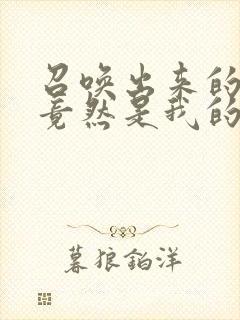 召唤出来的
竟然是我的
暮狼铂洋